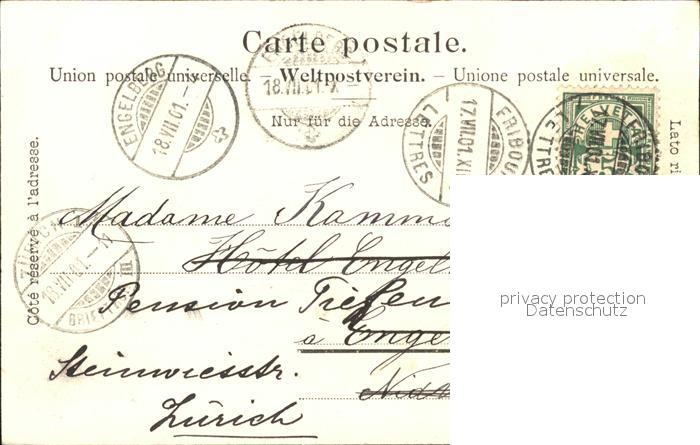 Carte postale.
Union postale universelle. – Weltpostverein. – Unione postale universale.
Nur für die Adresse.
Côté réservé à l'adresse.
Lato ri
ENGELBERG
18.VII.01.-X
18.VII.01-X
FRIBOU
LETTRES
17.VII.01.XI
HELVETIA
LETTRE
Madame Kamm
Hôtel Engel
Pension Tiefen
à Enge
Steinwiesstr.
Nid
Zürich
privacy protection
Datenschutz